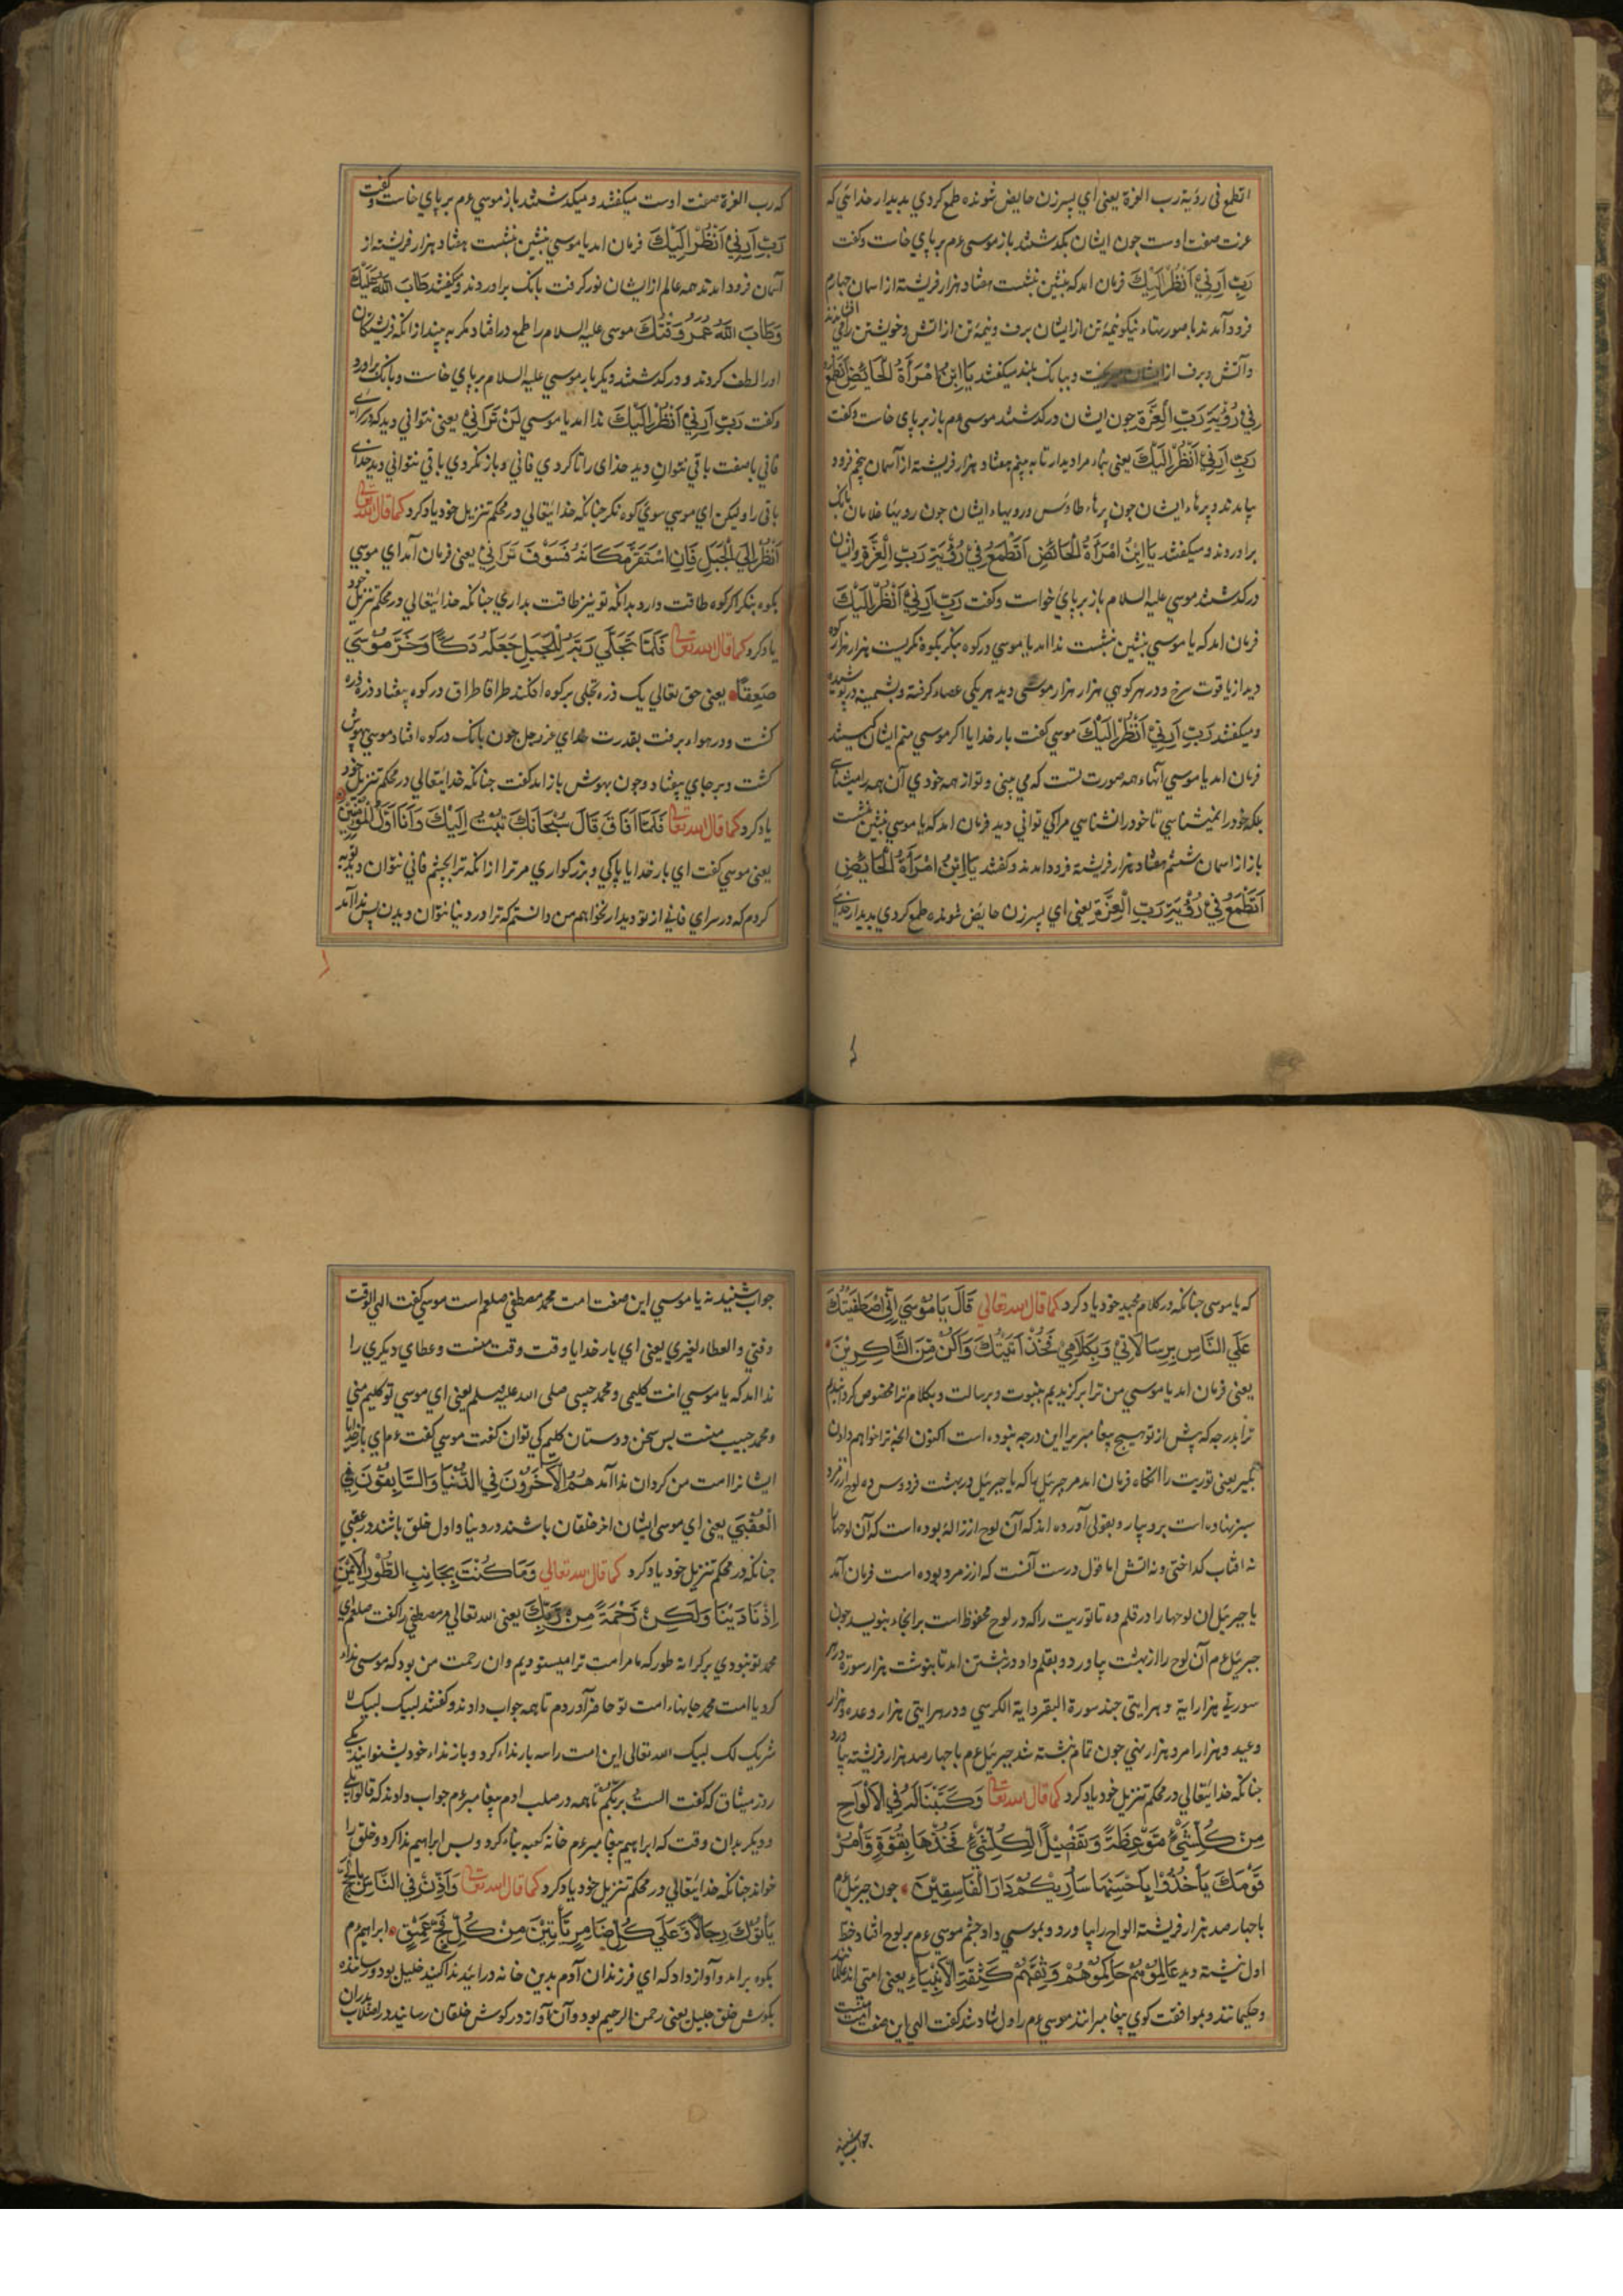 اتطمع فی رؤیة رب العزة یعنی ای پسر زن حایض شونده طمع کردی بدیدار خدایی که
عزت صفت اوست چون ایشان بکدشتند باز موسی ءم بر پای خاست وکفت
رَبِّ اَرِنِیْ اَنْظُرْ اِلَیْكَ فرمان امد که بنشین بنشست هفتاد هزار فریشته از اسمان چهارم
فرود آمدند با صورتهاء نیکو نیمهٔ تن از ایشان برف ونیمهٔ تن از اتش وخویشتن را فی
واتش وبرف از ایشان وببانک بلند میکفتند یَا ابْنَ امْرَأَةُ الْحَائِضِ اَتَطْمَعُ
فِیْ رُؤْیَةِ رَبِّ الْعِزَّةِ چون ایشان درکدشتند موسی ءم باز بر پای خاست وکفت
رَبِّ اَرِنِیْ اَنْظُرْ اِلَیْكَ یعنی بنماء مرا دیدار تا به بینم هفتاد هزار فریشته از آسمان پنجم فرود
بیامدند وپرهاء ایشان چون پرهاء طاوس ورویهاء ایشان چون رویهاء غلامان بانک
براوردند ومیکفتند یَا ابْنُ امْرَأَةُ الْحَائِضِ اَتَطْمَعُ فِیْ رُؤْیَةِ رَبِّ الْعِزَّةِ وایشان
درکدشتند موسی علیه السلام باز بر پای خواست وکفت رَبِّ اَرِنِیْ اَنْظُرْ اِلَیْكَ
فرمان امد که یا موسی بنشین بنشست ندا امد یا موسی درکوه بنکر بکوه نکریست هزار هزار کوه
دید از یاقوت سرخ ودر هر کوهی هزار هزار موسی دید هریکی عصاء کرفته وپشمینه در پوشیده
ومیکفتند رَبِّ اَرِنِیْ اَنْظُرْ اِلَیْكَ موسی کفت بار خدایا اکر موسی منم ایشان کیستند
فرمان امد یا موسی آنهاء همه صورت تست که می بینی وتو از همه خودی آن همه را میشناسی
بلکه خود را نمیشناسی تا خود را نشناسی مرا کی توانی دید فرمان امد که یا موسی بنشین بنشست
باز از اسمان ششم هفتاد هزار فریشته فرود امدند وکفتند یَا ابْنُ امْرَأَةُ الْحَائِضِ
اَتَطْمَعُ فِیْ رُؤْیَةِ رَبِّ الْعِزَّةِ یعنی ای پسر زن حایض شونده طمع کردی بدیدار خدای
که رب العزة صفت اوست میکفتند ومیکدشتند باز موسی ءم بر پای خاست وکفت
رَبِّ اَرِنِیْ اَنْظُرْ اِلَیْكَ فرمان امد یا موسی بنشین بنشست هفتاد هزار فریشته از
آسمان فرود امدند همه عالم از ایشان نور کرفت بانک براوردند وکفتند طَابَ اللّٰهُ عَلَیْكَ
وَطَابَ اللّٰهُ عُمْرُ وَقْتُكَ موسی علیه السلام را طمع در افتاد مکر به بیند از انکه فریشتکان
اورا لطف کردند ودرکدشتند دیکر بار موسی علیه السلام بر پای خاست وبانک براورد
وکفت رَبِّ اَرِنِیْ اَنْظُرْ اِلَیْكَ ندا امد یا موسی لَنْ تَرَانِیْ یعنی نتوانی دید که در سرای
فانی با صفت باقی نتوان دید خدای را تا کردی فانی وباز نکردی باقی نتوانی دید خدای
باقی را ولیکن ای موسی سوی کوه نکر چنانکه خدایتعالی در محکم تنزیل خود یاد کرد کما قال الله تعالی
اُنْظُرْ اِلَی الْجَبَلِ فَاِنِ اسْتَقَرَّ مَكَانَهُ فَسَوْفَ تَرَانِیْ یعنی فرمان آمد ای موسی
بکوه بنکر اکر کوه طاقت دارد بدانکه تو نیز طاقت بداری چنانکه خدایتعالی در محکم تنزیل خود
یاد کرد کما قال الله تعالی فَلَمَّا تَجَلَّی رَبُّهُ لِلْجَبَلِ جَعَلَهُ دَكًّا وَخَرَّ مُوْسَی
صَعِقًا یعنی حق تعالی یک ذره تجلی بر کوه افکند طراقا طراق در کوه بیفتاد وذره ذره
کشت ودر هواء برفت بقدرت خدای عزوجل چون بانک در کوه افتاد موسی بیهوش
کشت وبر جای بیفتاد وچون بهوش باز امد کفت چنانکه خدایتعالی در محکم تنزیل خود
یاد کرد کما قال الله تعالی فَلَمَّا اَفَاقَ قَالَ سُبْحَانَكَ تُبْتُ اِلَیْكَ وَاَنَا اَوَّلُ الْمُؤْمِنِیْنَ
یعنی موسی کفت ای بار خدایا پاکی وبزرکواری مر ترا از انکه ترا بچشم فانی نتوان دید توبه
کردم که در سرای فانی از تو دیدار نخواهم من دانستم که ترا در دنیا نتوان دیدن پس ندا آمد
که یا موسی چنانکه در کلام مجید خود یاد کرد کما قال الله تعالی قَالَ یَا مُوْسَی اِنِّی اصْطَفَیْتُكَ
عَلَی النَّاسِ بِرِسَالَاتِیْ وَبِكَلَامِیْ فَخُذْ مَا اٰتَیْتُكَ وَكُنْ مِنَ الشَّاكِرِیْنَ
یعنی فرمان امد یا موسی من ترا برکزیدیم بنبوت وبرسالت وبکلام ترا مخصوص کردانیدم
ترا بدرجه که پیش از تو هیچ پیغامبر را این درجه نبوده است اکنون انچه ترا خواهم دادن
بکیر یعنی توریت را انکاه فرمان امد مر جبرئیل را که یا جبرئیل در بهشت فردوس ده لوح از زمرد
سبز نهاده است برو بیار وبقولی آورده اند که آن لوح از ژاله بوده است که آن لوحها
نه افتاب کداختی ونه اتش اما قول درست آنست که از زمرد بوده است فرمان آمد
یا جبرئیل ان لوحها را در قلم ده تا توریت را که در لوح محفوظ است بر انجاء بنویسد چون
جبرئیل ءم آن لوح را از بهشت بیاورد وبقلم داد در نبشتن امد تا بنوشت هزار سورة در هر
سورتی هزار ایة وهر ایتی چند سورة البقر وایة الکرسی ودر هر ایتی هزار وعده وهزار
وعید وهزار امر وهزار نهی چون تمام نبشته شد جبرئیل ءم با چهار صد هزار فریشته بیاورد
چنانکه خدایتعالی در محکم تنزیل خود یاد کرد کما قال الله تعالی وَكَتَبْنَا لَهُ فِی الْاَلْوَاحِ
مِنْ كُلِّ شَیْءٍ مَوْعِظَةً وَتَفْصِیْلًا لِكُلِّ شَیْءٍ فَخُذْهَا بِقُوَّةٍ وَّأْمُرْ
قَوْمَكَ یَأْخُذُوْا بِاَحْسَنِهَا سَاُرِیْكُمْ دَارَ الْفَاسِقِیْنَ چون جبرئیل ءم
با چهار صد هزار فریشته الواح را بیاورد وبموسی داد چشم موسی ءم بر لوح افتاد خط
اول نبشته دید عَالِمُوْهُمْ حَاكِمُوْهُمْ وَثِقَتُهُمْ كَثِقَةِ الْاَنْبِیَاءِ یعنی امتی اند علما
وحکیمانند وبموافقت کوی پیغامبرانند موسی ءم را دل شاد شد کفت الهی این صفت امت منست
جواب شنید نه یا موسی این صفت امت محمد مصطفی صلعم است موسی کفت الهی الوقت
وقتی والعطاء لغیری یعنی ای بار خدایا وقت وقت منست وعطای دیکری را
ندا امد که یا موسی انت کلیمی ومحمد حبیبی صلی الله علیه وسلم یعنی ای موسی تو کلیم منی
ومحمد حبیب منست پس سخن دوستان کلیم کی توان کفت موسی کفت ءم ای بار خدایا
ایشانرا امت من کردان ندا آمد هُمُ الْاٰخَرُوْنَ فِی الدُّنْیَا وَالسَّابِقُوْنَ فِی
الْعُقْبَی یعنی ای موسی ایشان اخر خلقان باشند در دنیا واول خلق باشند در عقبی
چنانکه در محکم تنزیل خود یاد کرد کما قال الله تعالی وَمَا كُنْتَ بِجَانِبِ الطُّوْرِ الْاَیْمَنِ
اِذْ نَادَیْنَا وَلٰكِنْ رَحْمَةً مِنْ رَبِّكَ یعنی الله تعالی مر مصطفی را کفت صلعم ای
محمد تو نبودی بر کرانه طور که ما مر امت ترا میستودیم وان رحمت من بود که موسی نداء
کرد یا امت محمد جانهاء امت تو حاضر آوردم تا همه جواب دادند وکفتند لبیک لبیک لا
شریک لک لبیک الله تعالی این امت را سه بار نداء کرد وباز نداء خود بشنوانید یکی
روز میثاق که کفت الست بربکم تا همه در صلب ادم پیغامبر ءم جواب دادند که قالوا بلی
ودیکر بدان وقت که ابراهیم پیغامبر ءم خانه کعبه بناء کرد وپس ابراهیم ندا کرد وخلق را
خواند چنانکه خدایتعالی در محکم تنزیل خود یاد کرد کما قال الله تعالی وَاَذِّنْ فِی النَّاسِ بِالْحَجِّ
یَأْتُوْكَ رِجَالًا وَّعَلَی كُلِّ ضَامِرٍ یَّأْتِیْنَ مِنْ كُلِّ فَجٍّ عَمِیْقٍ ابراهیم ءم
بکوه بر امد وآواز داد که ای فرزندان آدم بدین خانه در ائید ندا کنید خلیل بود ورساننده
بکوش خلق جلیل یعنی رحمن الرحیم بود وآن آواز در کوش خلقان رسانید در اصلاب پدران
جواب شنید